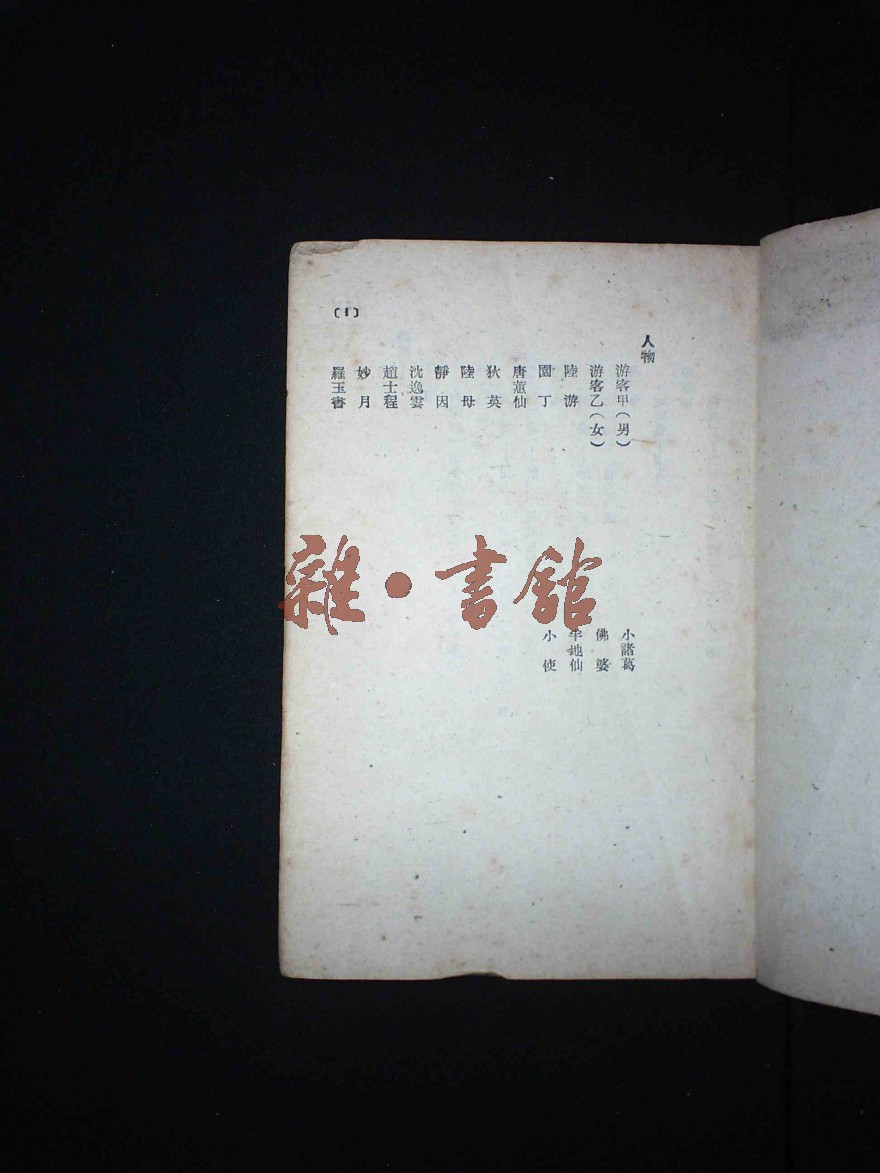 人物
游客甲(男)
游客乙(女)
陸游
園丁
唐蕙仙
狄英
陸母
靜因
沈逸雲
趙士程
妙月
羅玉書
小諸葛
佛婆
半地仙
小使
〔1〕
雜·書館